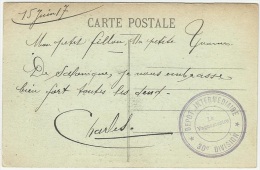 15 Juin 17
CARTE POSTALE
Mon petit fillon, Ma petite Yvonne
De Salonique, je vous embrasse
bien fort toutes les deux.
Charles
DEPOT INTERMEDIAIRE
Le
30e DIVISION